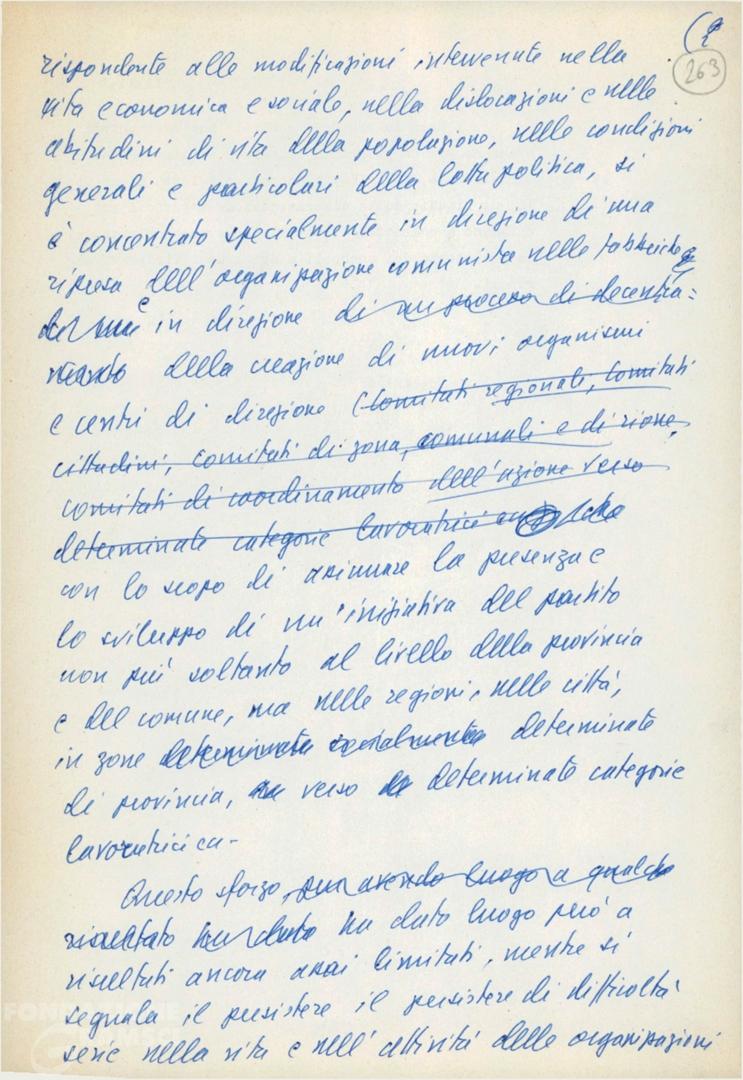 (2
263
rispondente alle modificazioni intervenute nella
vita economica e sociale, nella dislocazioni e nelle
abitudini di vita della popolazione, nelle condizioni
generali e particolari della lotta politica, si
è concentrato specialmente in direzione di una
ripresa dell'organizzazione comunista nelle fabbriche
e in direzione di un processo di decentra=
mento della creazione di nuovi organismi
e centri di direzione (Comitati regionali, Comitati
cittadini, comitati di zona, comunali e di rione,
comitati di coordinamento dell'azione verso
determinate categorie lavoratrici
con lo scopo di assicurare la presenza e
lo sviluppo di un'iniziativa del partito
non più soltanto al livello della provincia
e del comune, ma nelle regioni, nelle città,
in zone determinate socialmente determinate
di provincia, verso determinate categorie
lavoratrici ecc.-
Questo sforzo, pur avendo luogo a qualche
risultato ha dato ha dato luogo però a
risultati ancora assai limitati, mentre si
segnala il persistere il persistere di difficoltà
serie nella vita e nell'attività delle organizzazioni
FONDAZIONE
GRAMSCI